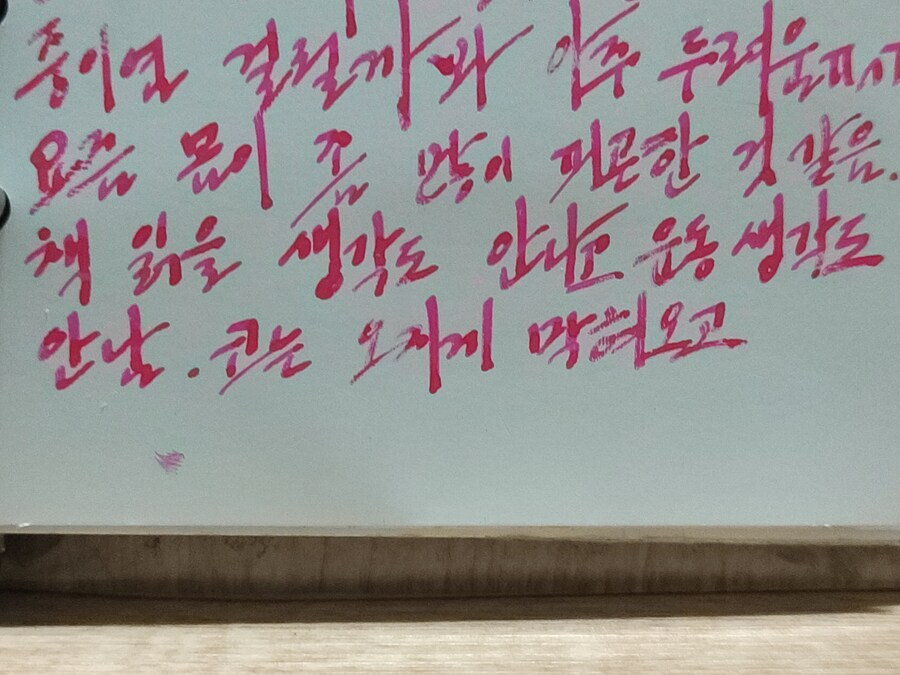 걸릴까봐 아주 두려운
요즘 몸이 좀 많이 피곤한 것 같음.
책 읽을 생각도 안나고 운동 생각도
안남. 코는 오지게 막혀오고